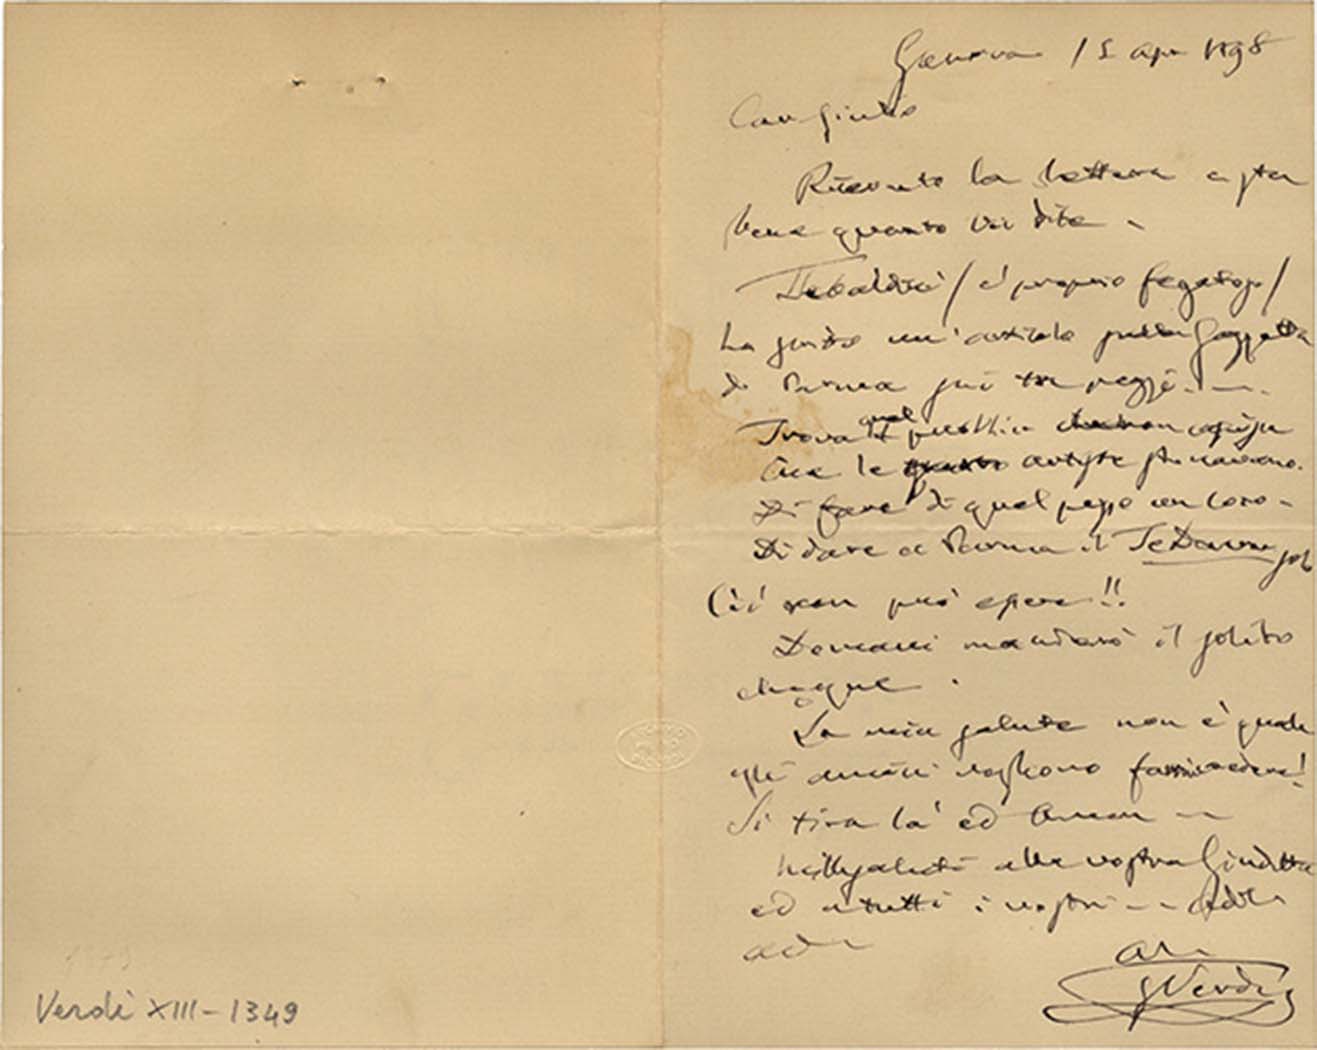 Genova 15 apr 1898
Caro Giulio
Ricevuto la lettera e sta
bene quanto voi dite -
Tebaldini / è proprio fegatoso /
ha scritto un'articolo sulla Gazzetta
di Parma sui tre pezzi . . .
Trova quel
che le artiste stuonavano.
Di fare di quel pezzo un coro -
Di dare a Parma il TeDeum sol
Ciò non può essere!!
Domani manderò il solito
cheque .
La mia salute non è quale
gli amici vogliono farmi credere!
Si tira là ed Amen -
Mille saluti alla vostra Giuditta
ed a tutti i vostri - - Addio
ad
G Verdi
Verdi XIII - 1349